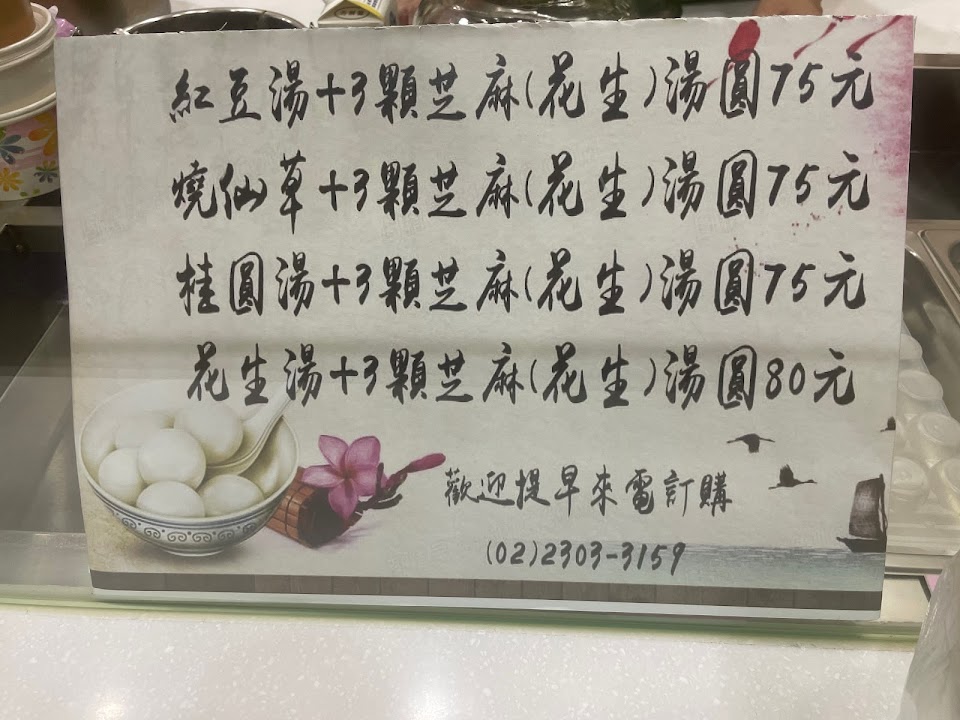 紅豆湯+3顆芝麻(花生)湯圓75元
燒仙草+3顆芝麻(花生)湯圓75元
桂圓湯+3顆芝麻(花生)湯圓75元
花生湯+3顆芝麻(花生)湯圓80元
歡迎提早來電訂購
(02)2303-3159